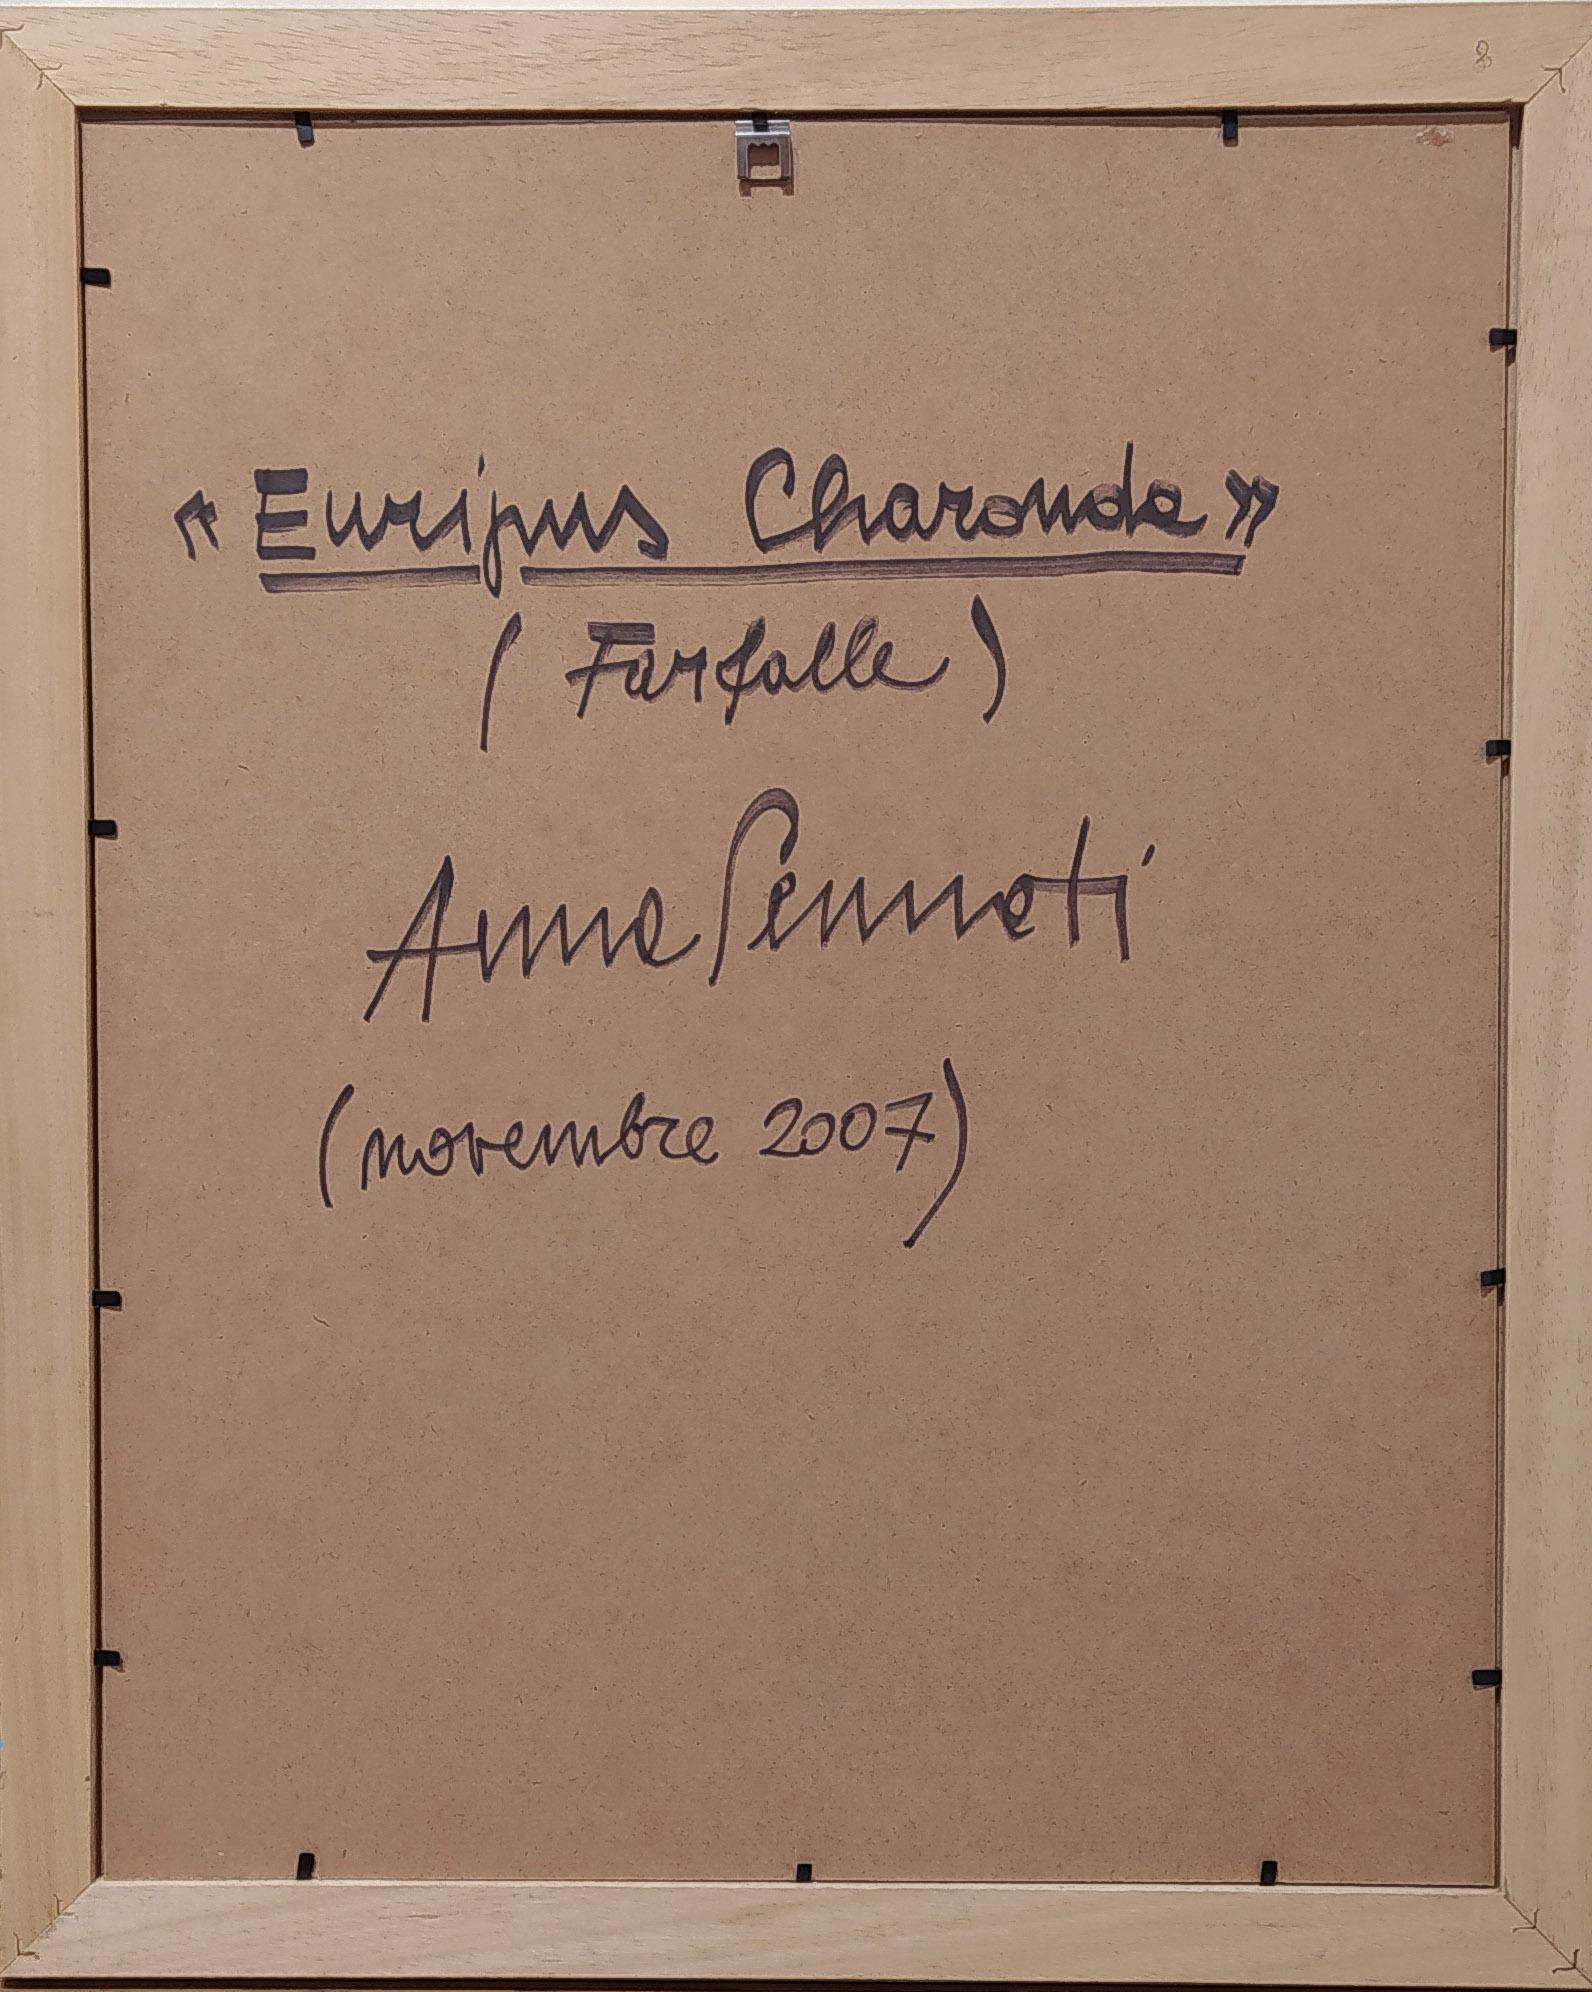 8
«Euripus Charonda»
(Farfalle)
Anna Pennati
(novembre 2007)